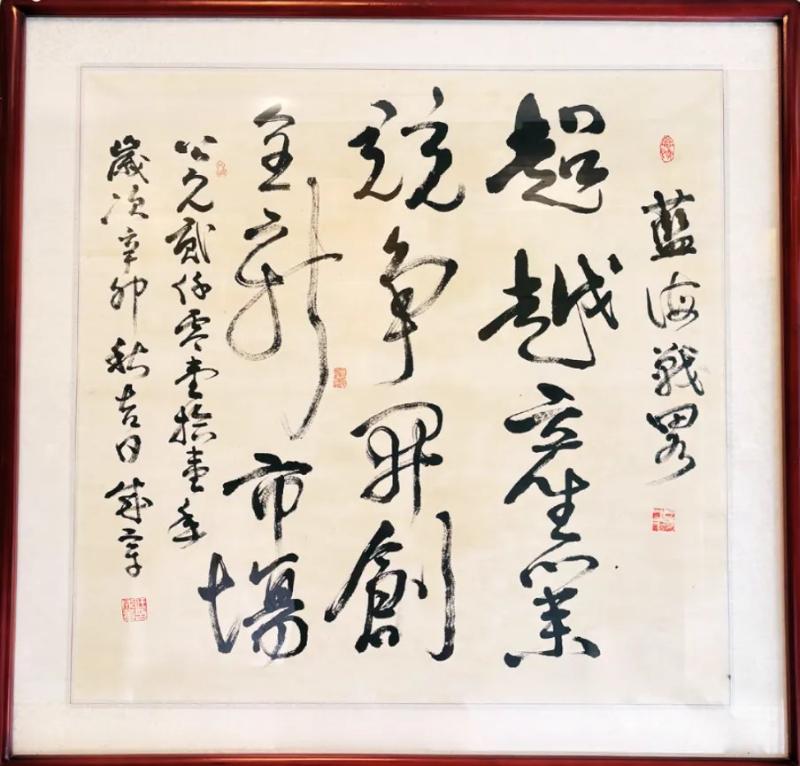 藍海戰畧
超越產業
競争開創
全新市場
公元貳仟零壹拾壹年
歲次辛卯秋吉日